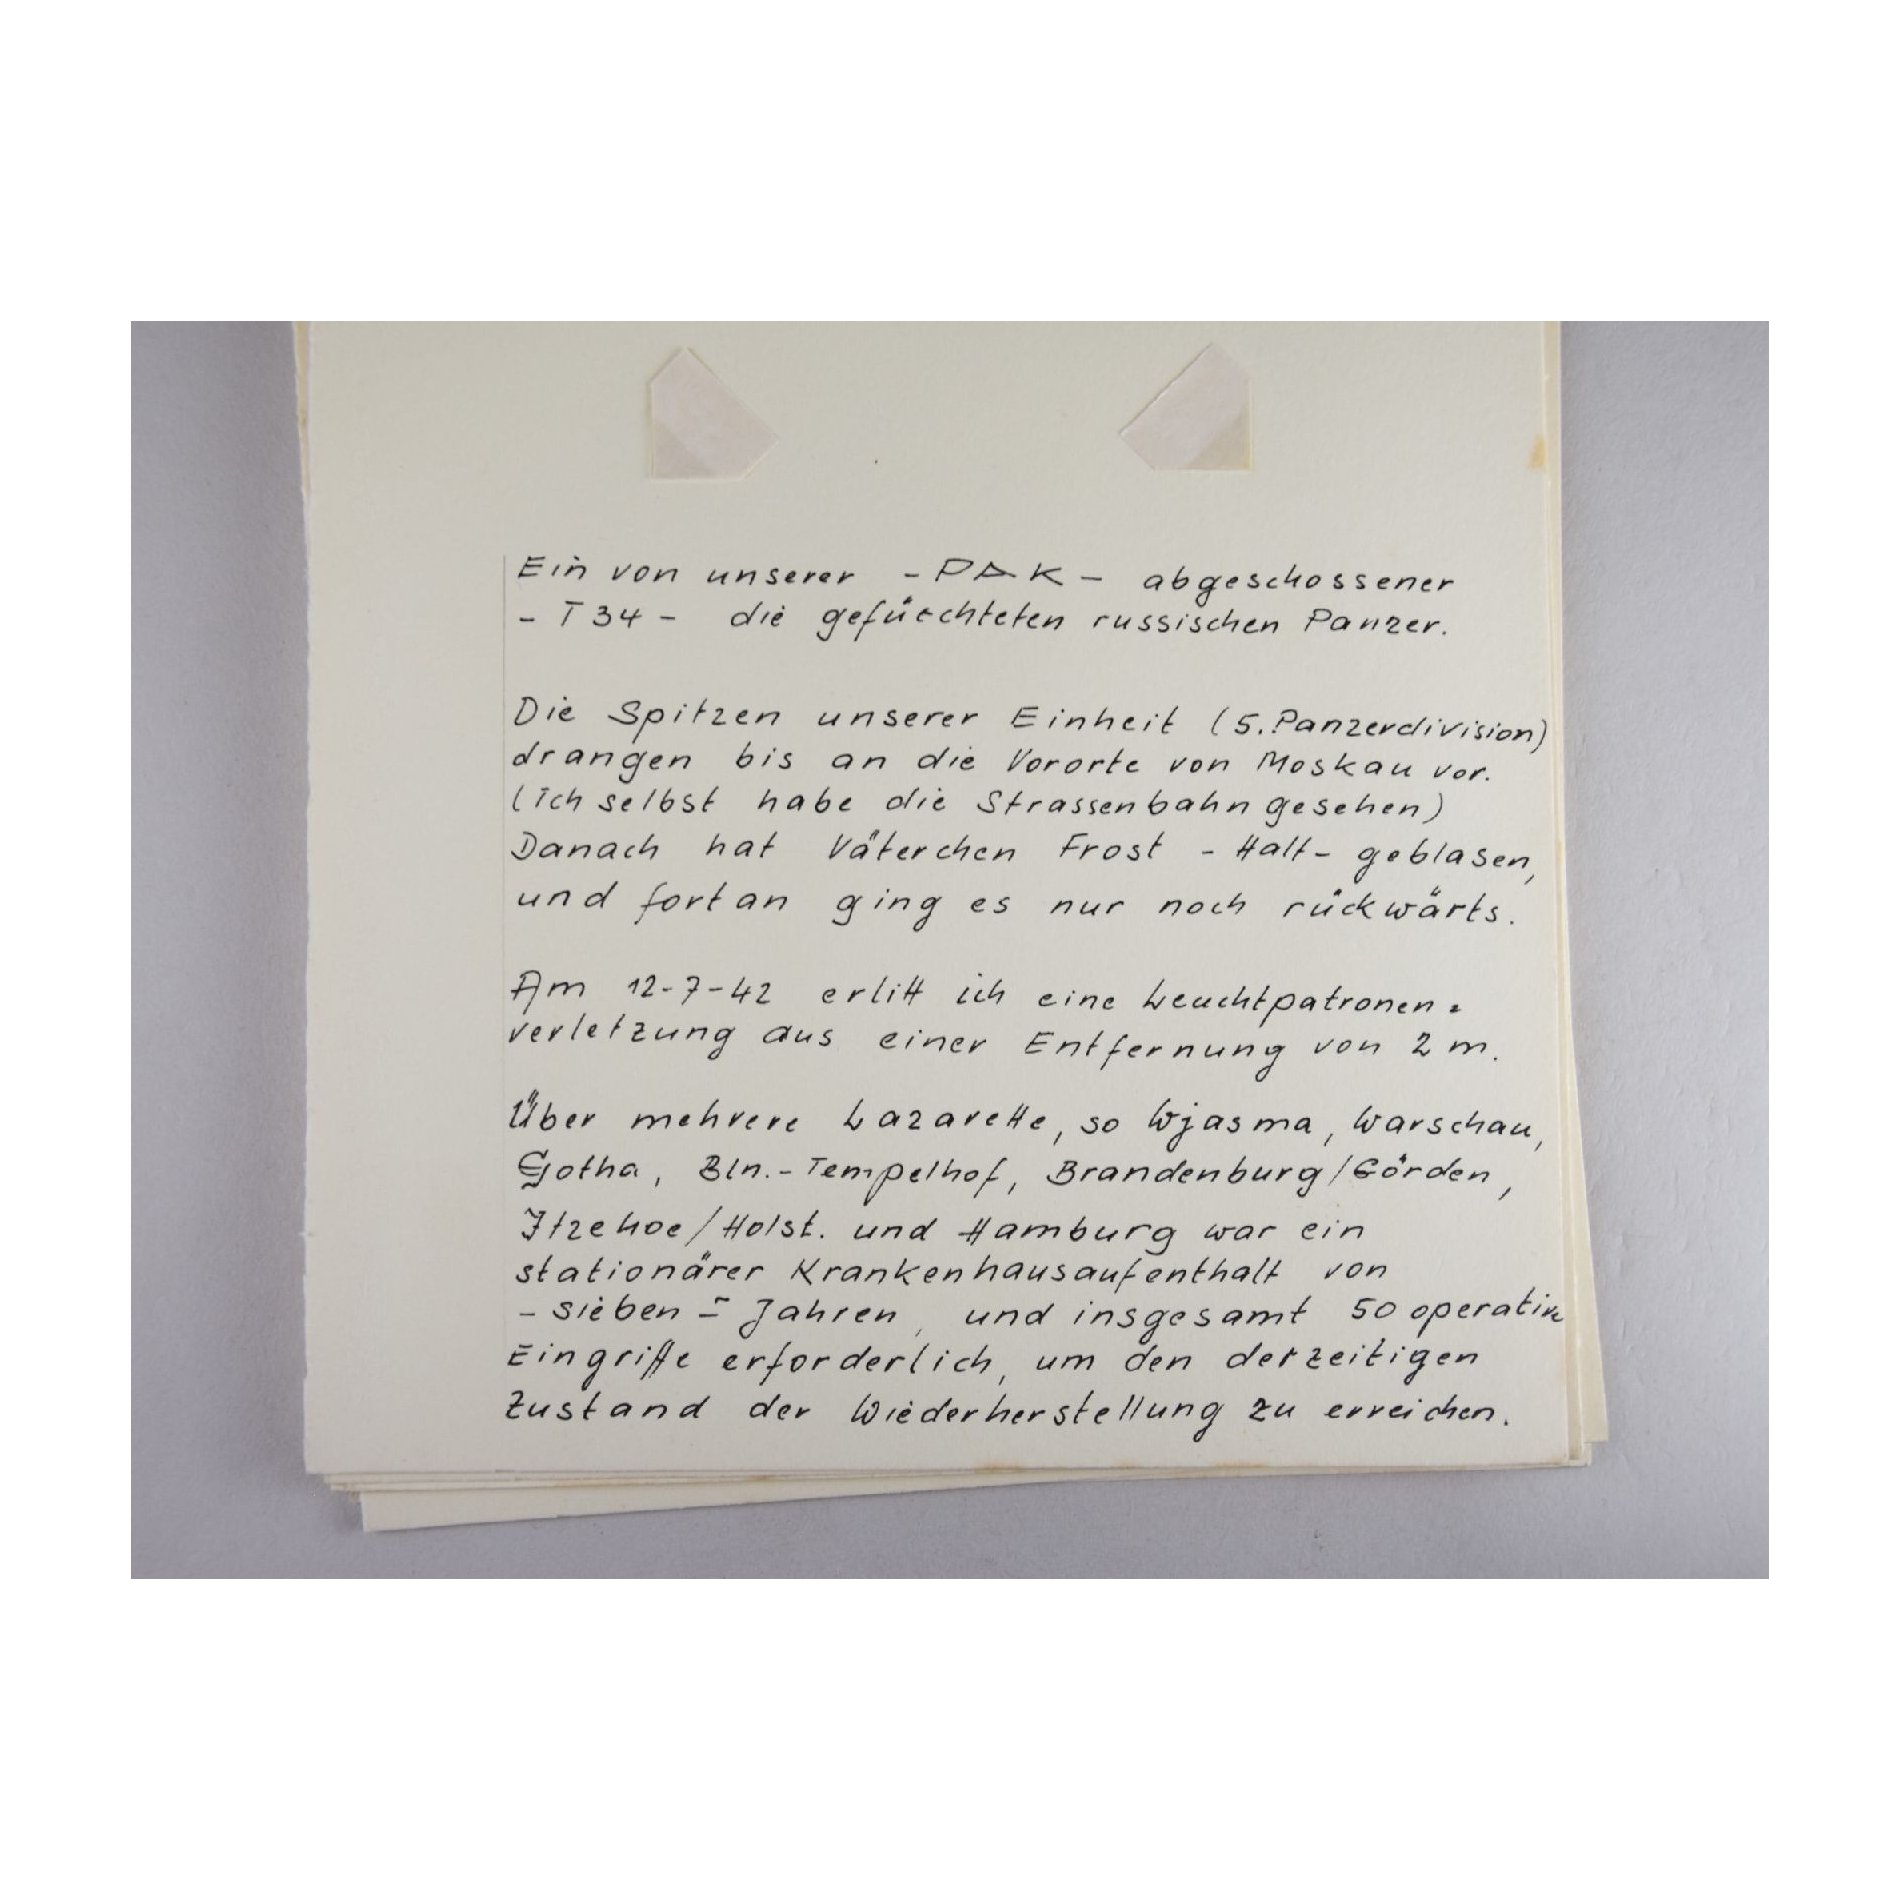 Ein von unserer - PAK - abgeschossener
- T 34 - die gefürchteten russischen Panzer.
Die Spitzen unserer Einheit (5. Panzerdivision)
drangen bis an die Vororte von Moskau vor.
(ich selbst habe die Strassenbahn gesehen)
Danach hat Väterchen Frost - Halt - geblasen,
und fortan ging es nur noch rückwärts.
Am 12-7-42 erlitt ich eine Leuchtpatronen-
verletzung aus einer Entfernung von 2 m.
Über mehrere Lazarette, so Wjasma, Warschau,
Gotha, Bln.-Tempelhof, Brandenburg/Görden,
Itzehoe/Holst. und Hamburg war ein
stationärer Krankenhausaufenthalt von
- sieben - Jahren, und insgesamt 50 operative
Eingriffe erforderlich, um den derzeitigen
Zustand der Wiederherstellung zu erreichen.